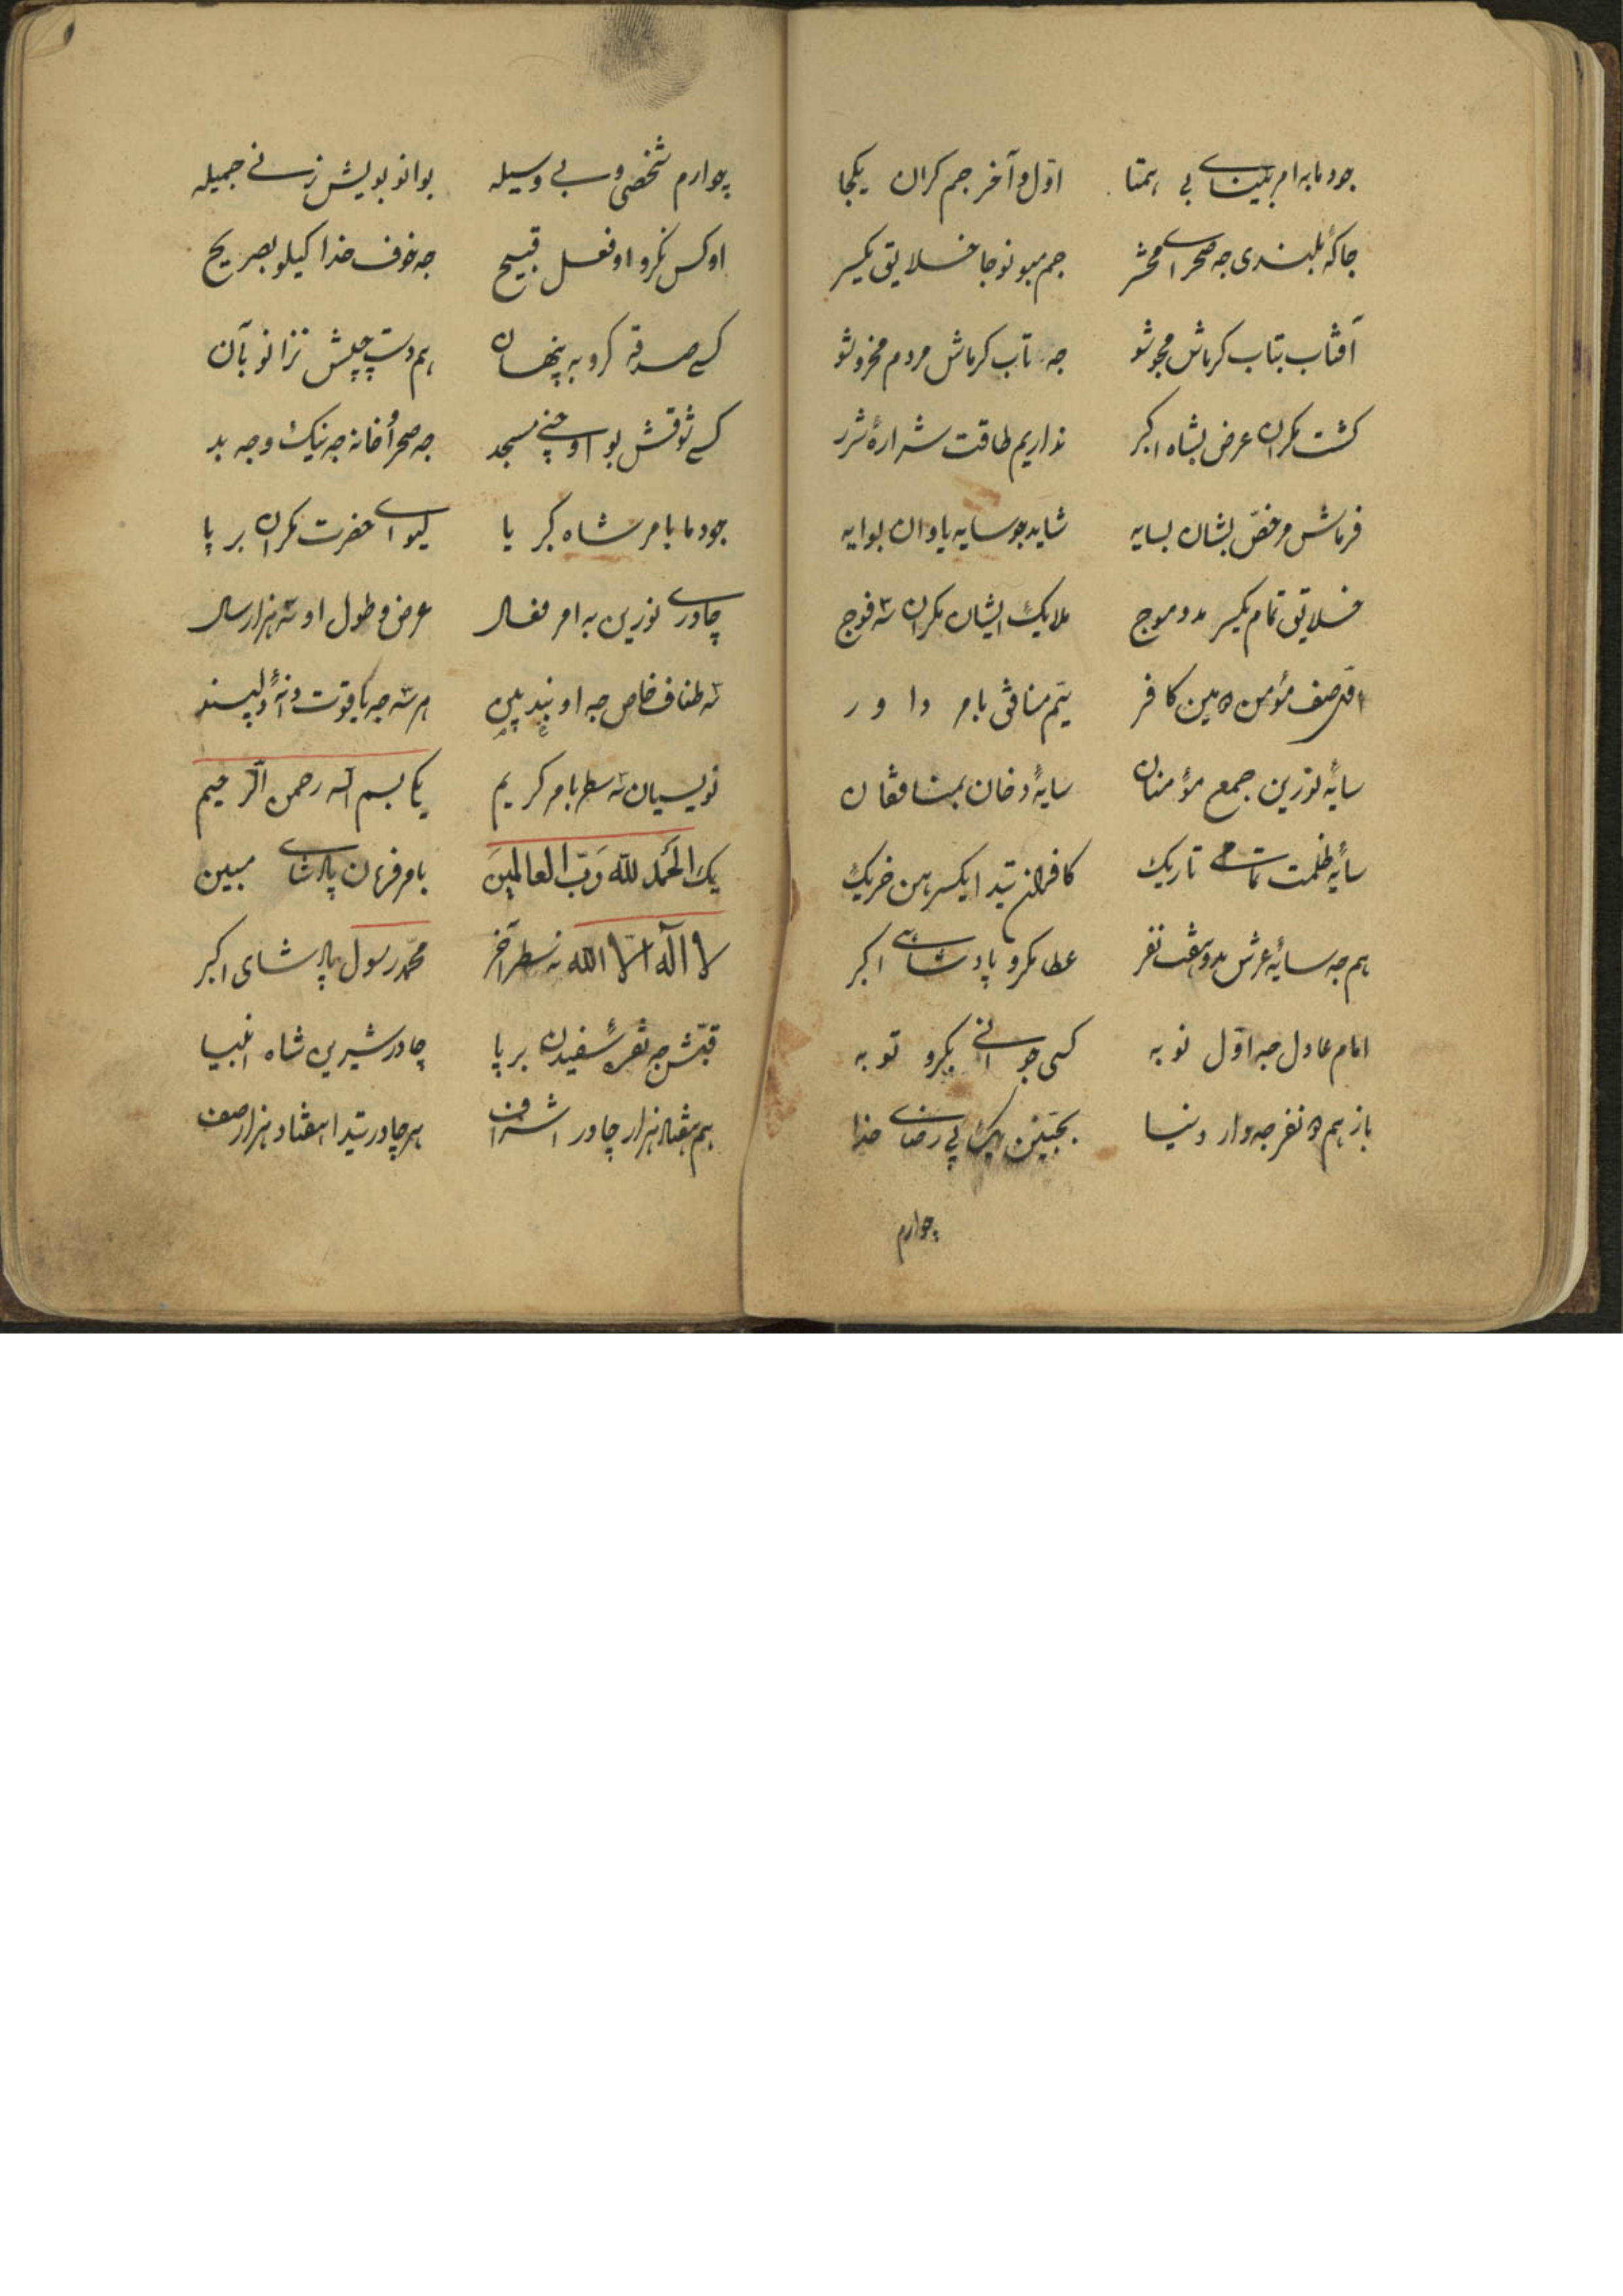 جودما به امر بینای بی همتا اول و آخر جم کران یکجا
جاگهٔ بلندی جه صحرای محشر جم مبو نوجا خلایق یکسر
آفتاب بتاب گرماش مجوشو جه تاب گرماش مردم مخروشو
گشت مکران عرض بشاه اکبر نداریم طاقت شرارهٔ شرر
فرماش مرخص بشان بسایه شاید جو سایه یاوان بوایه
خلایق تمام یکسر مدو موج ملایک ایشان مکران سه فوج
اول صف مؤمن دومین کافر سیم منافق بامر داور
سایهٔ نورین جمع مؤمنان سایهٔ دخان بمنافقان
سایهٔ ظلمت تمامی تاریک کافران تیدا یکسر من خریک
هم جه سایهٔ عرش مدو هفت نفر عطا مکرو پادشای اکبر
امام عادل جه اول نوبه کسی جوانی بکرو توبه
باز هم دو نفر جه دار دنیا پی رضای خدا
چوارم
چوارم شخصی و بی وسیله بوانو بویش زنی جمیله
او کس نکرو او فعل قبیح جه خوف خدا گیلو بصریح
کسی صدقه کرو به پنهان هم دست چپش نزانو بآن
کسی ذوقش بو او چنی مسجد جه صحرا و خانه جه نیک و جه بد
جودما بامر شاه کبریا لیوای حضرت مکران برپا
چادری نورین به امر فعال عرض و طول او سه هزار سال
سه طناف خاص جه او بند هر سه جه یاقوت دانهٔ دلپسند
نویسیان سه سطر بامر کریم یکا بسم الله رحمن الرحیم
یک الحمد لله رب العالمین بامر فرمان پادشای مبین
لا اله الا الله نه سطر آخر محمد رسول پادشای اکبر
قبش جه نقرهٔ سفیدن برپا چادر شیرین شاه انبیا
هم هفتاد هزار چادر اشراف هر چادر تیدا هفتاد هزار صف